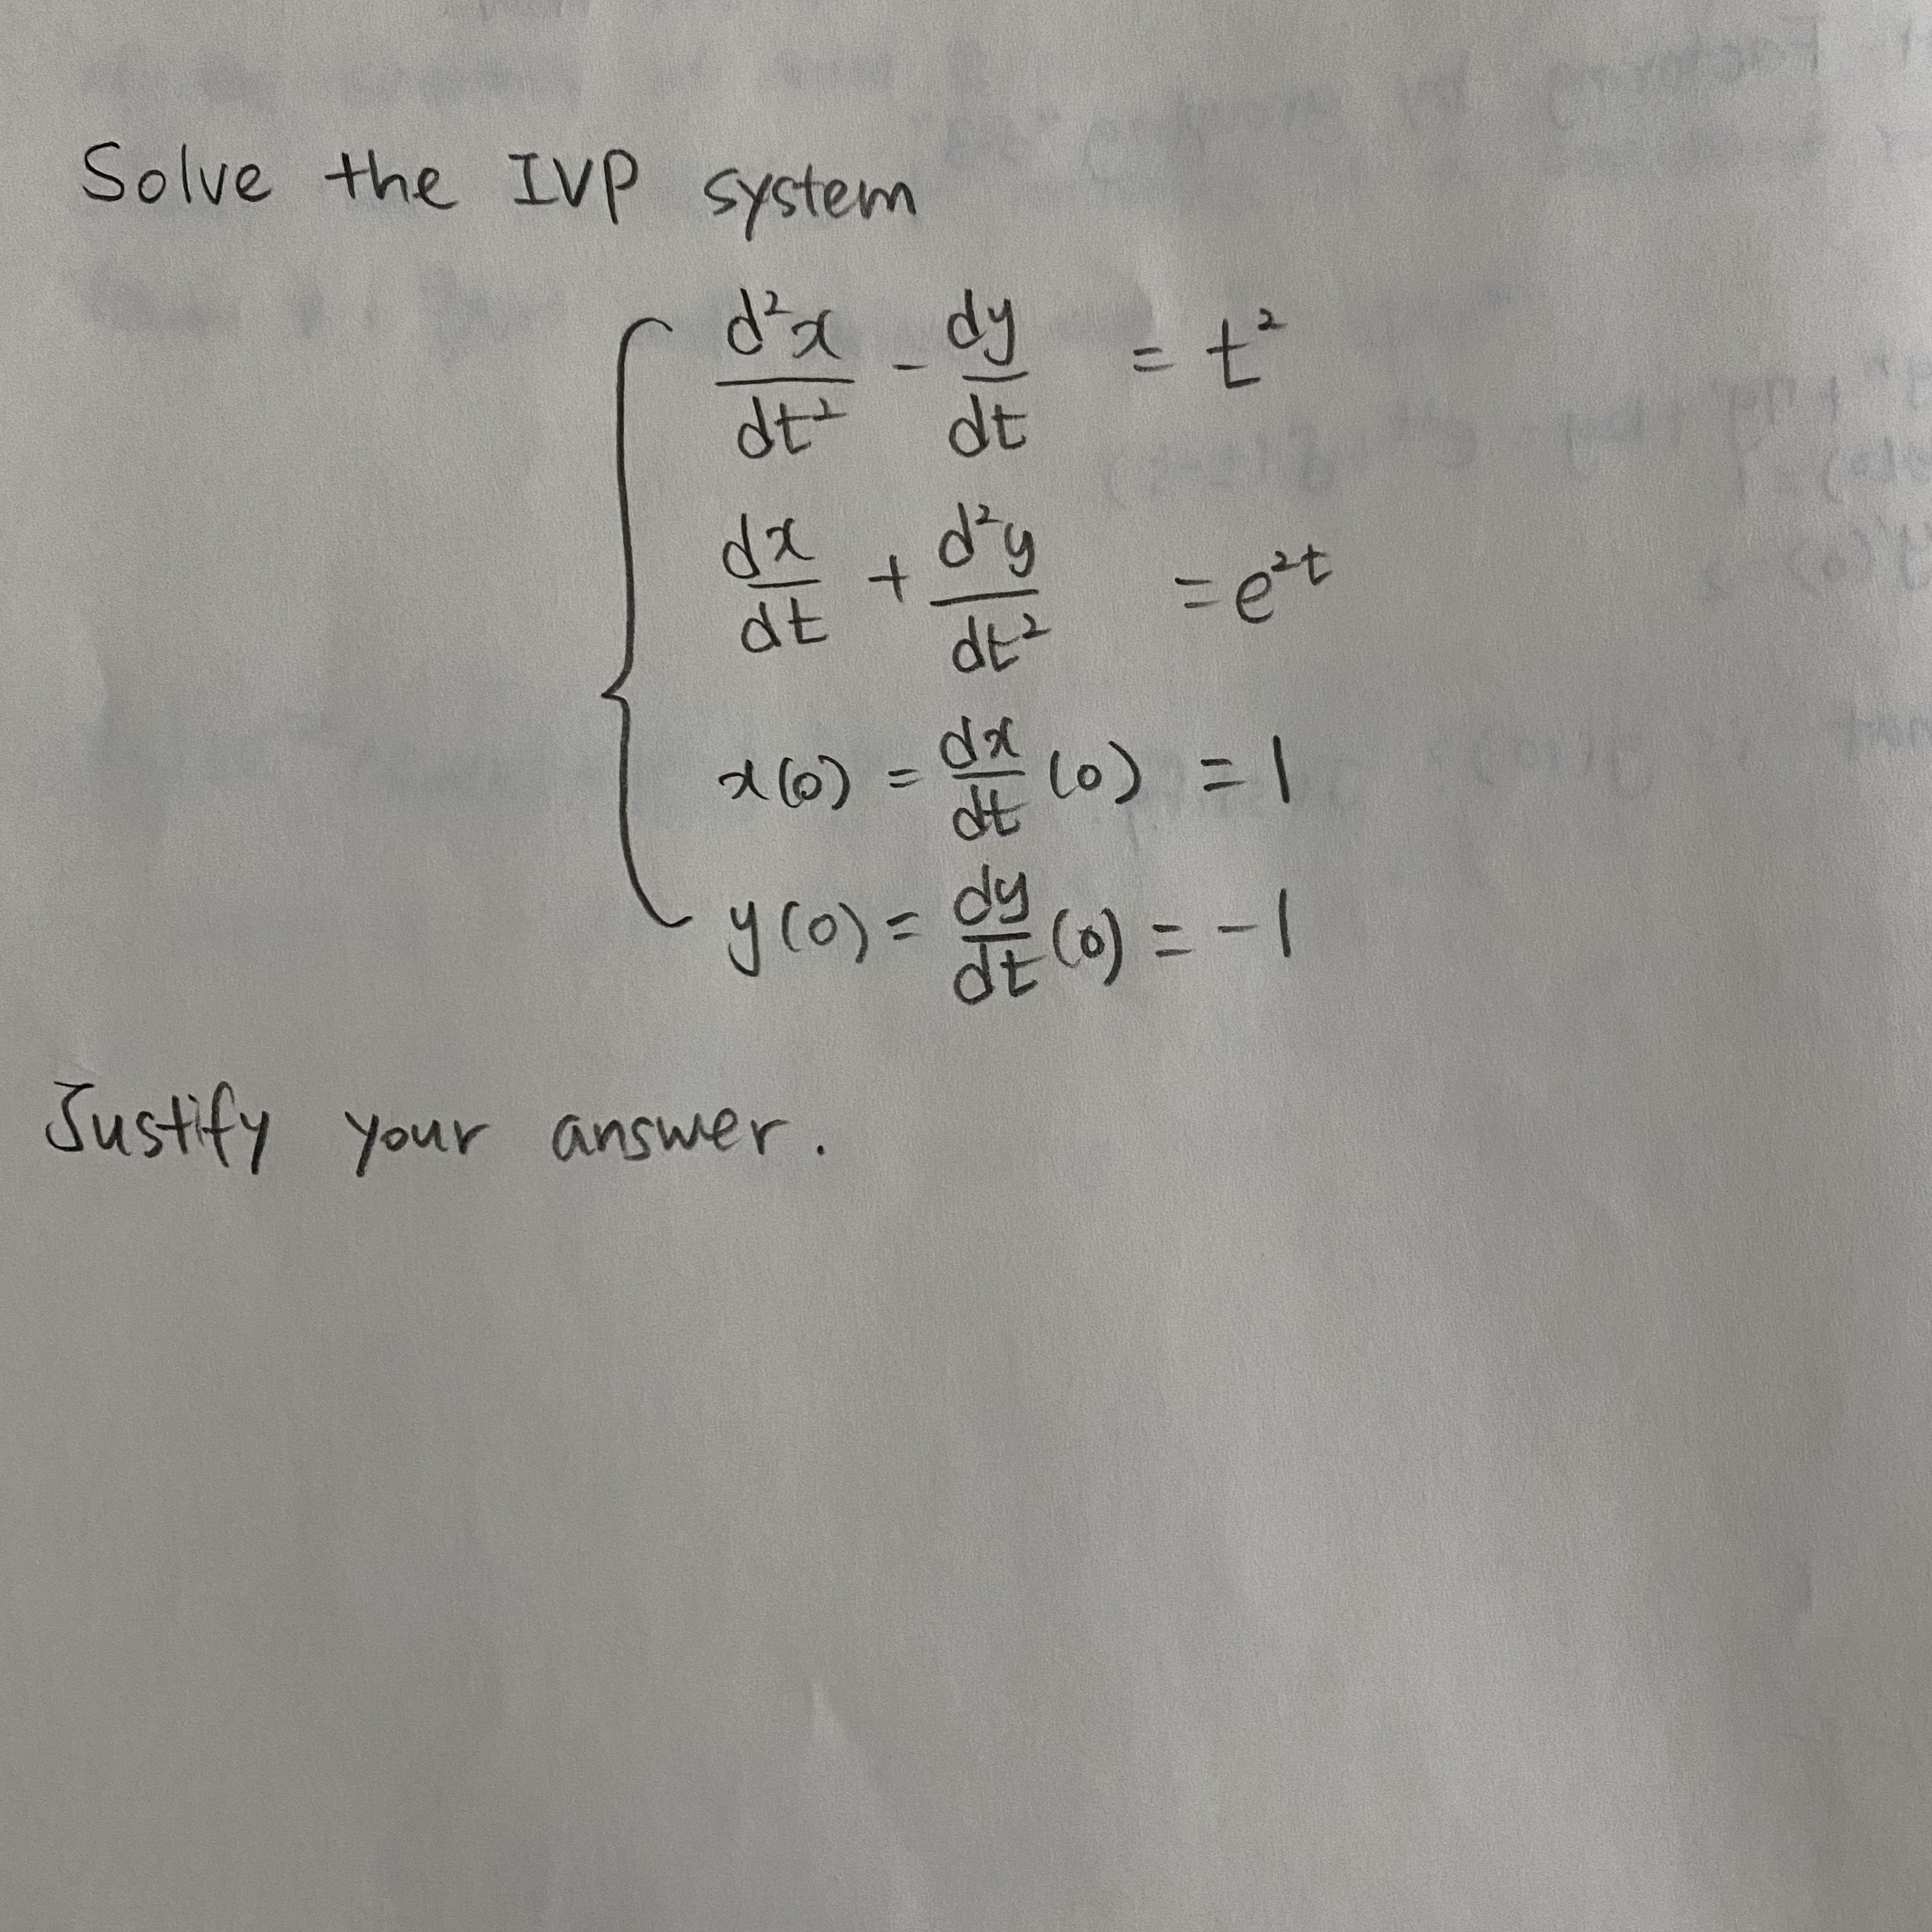 Solve the IVP system
d²x/dt² - dy/dt = t²
dx/dt + d²y/dt² = e²ᵗ
x(0) = dx/dt (0) = 1
y(0) = dy/dt (0) = -1
Justify your answer.